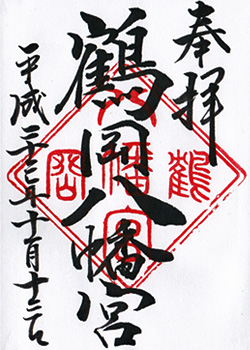 奉拝
鶴岡八幡宮
平成二十二年十月十二日